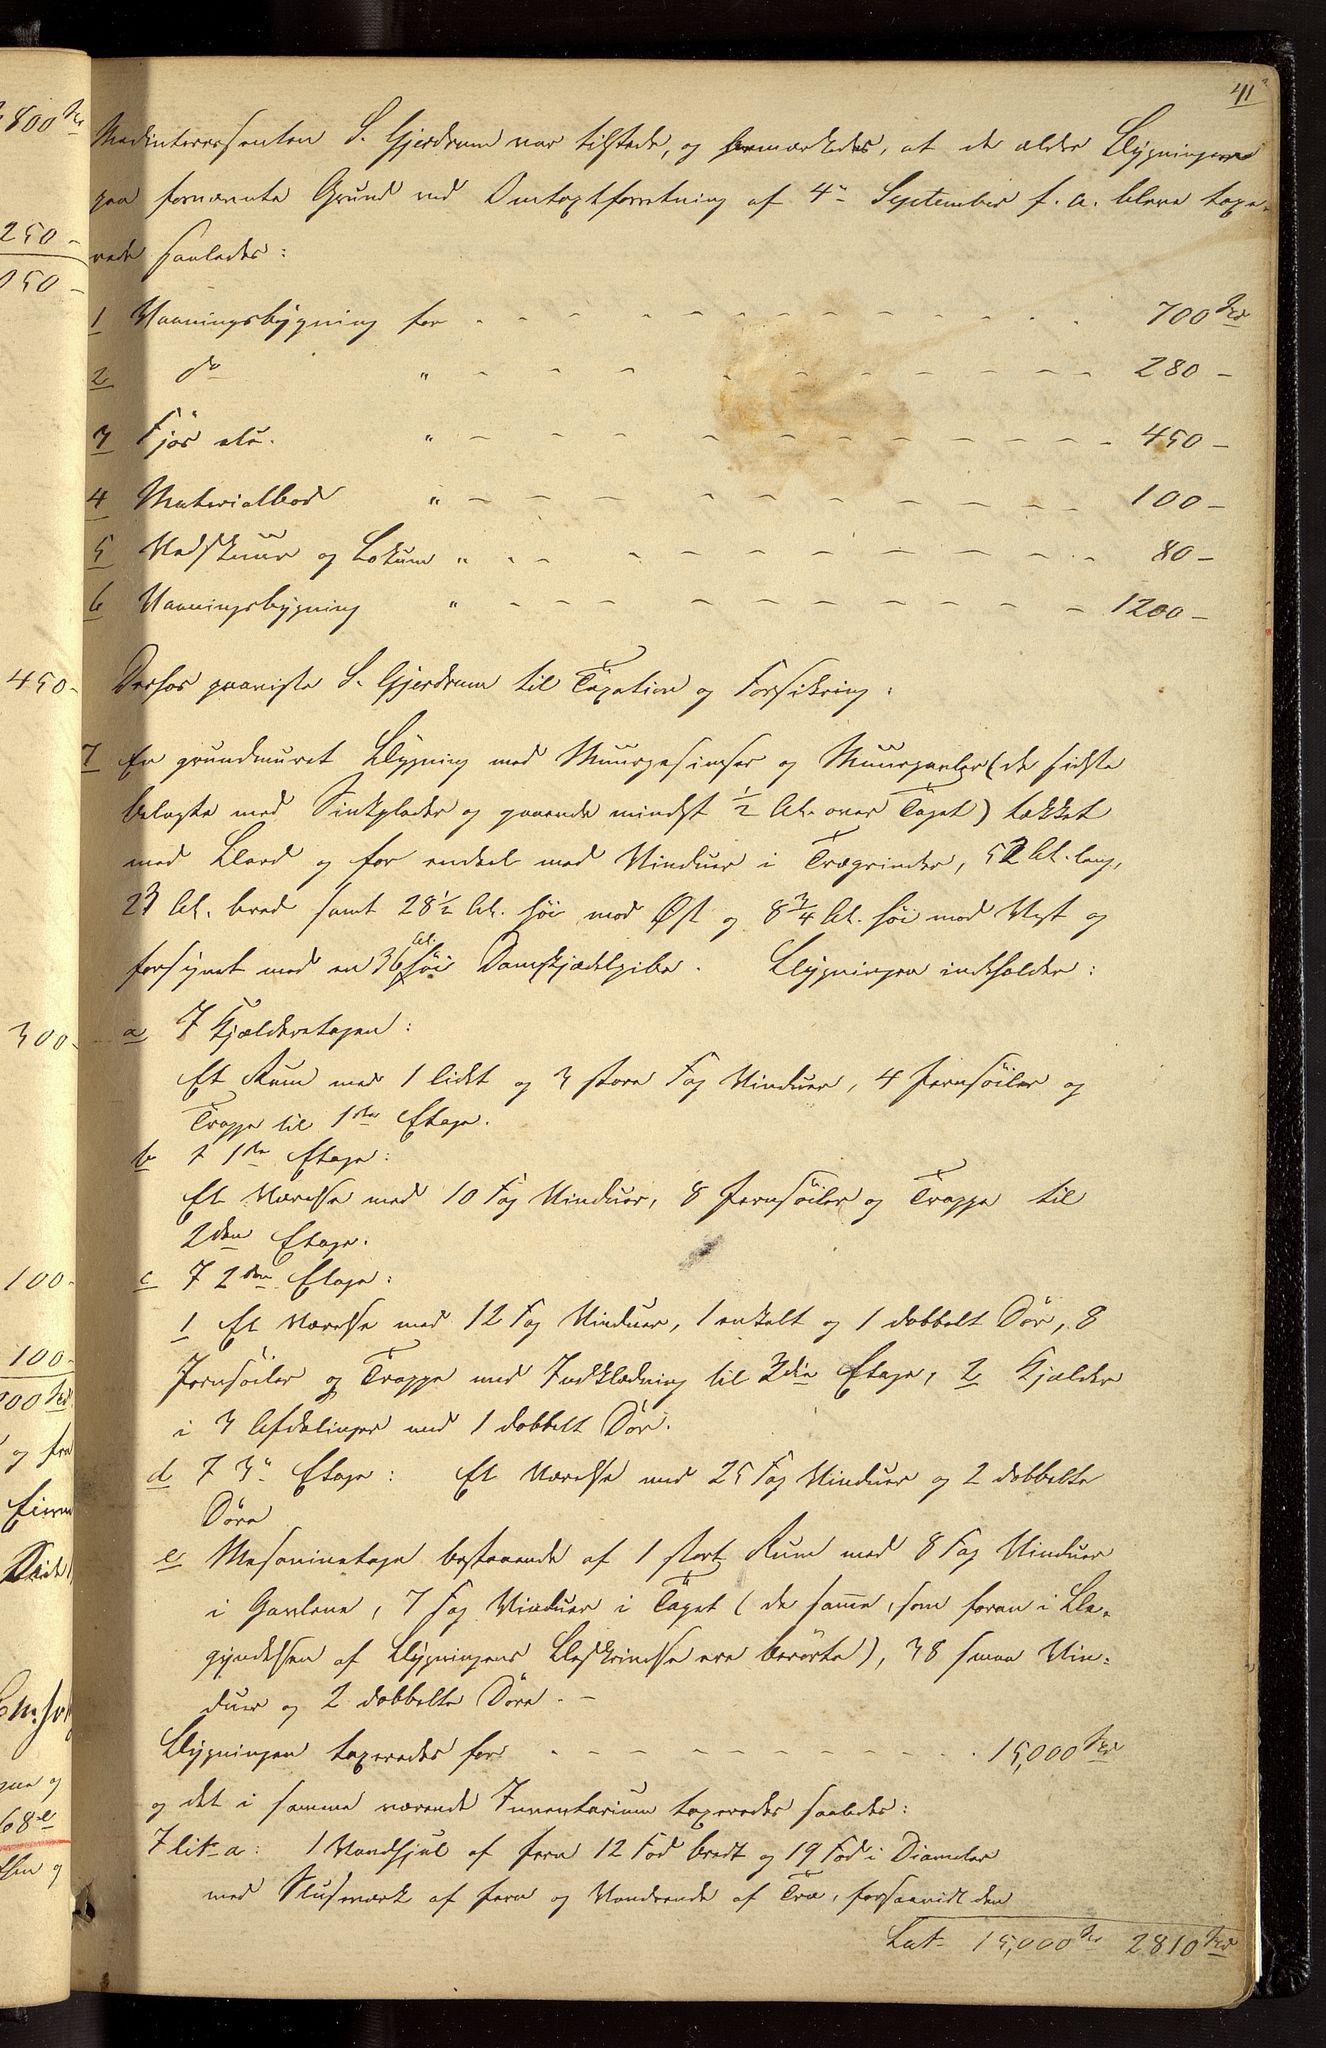 41
Medinteressenten S. Gjerdrum var tilstede, og bemærkedes, at de ældre Bygninger
paa fornævnte Grund ved Omtaxtforretning af 4de September f. a. bleve taxe-
rede saaledes:
1 Vaaningsbygning for - - - 700 Spd
2 do " - - - 280 -
3 Fjøs etc. " - - - 450 -
4 Materialbod " - - - 100 -
5 Vedskuur og Lokum " - - - 80 -
6 Vaaningsbygning " - - - 1200 -
Derhos paaviste S. Gjerdrum til Taxation og Forsikring:
7 En grundmuret Bygning med Muurgesimser og Muurgavler (de sidste
belagte med Sinkplader og gaaende mindst 1/2 Al. over Taget) tækket
med Bord og for enkel med Vinduer i Trægrinder, 52 Al. lang,
23 Al. bred samt 28 1/2 Al. høi mod Øst og 8 3/4 Al. høi mod Vest og
forsynet med en 36 Al. høi Damkjædelpibe. Bygningen indeholder:
a I Kjælderetagen:
Et Rum med 1 lidet og 3 store Fag Vinduer, 4 Jernsøiler og
Trappe til 1ste Etage.
b I 1ste Etage:
Et Værelse med 10 Fag Vinduer, 8 Jernsøiler og Trappe til
2den Etage.
c I 2den Etage:
1 Et Værelse med 12 Fag Vinduer, 1 enkelt og 1 dobbelt Dør, 8
Jernsøiler og Trappe med Indklædning til 3die Etage, 2 Kjælder
i 3 Afdelinger med 1 dobbelt Dør.
d I 3die Etage: Et Værelse med 25 Fag Vinduer og 2 dobbelte
Døre
e Mesaninetage bestaaende af 1 stort Rum med 8 Fag Vinduer
i Gavlene, 7 Fag Vinduer i Taget (de samme, som foran i Be-
gyndelsen af Bygningens Beskrivelse ere berørte), 38 smaa Vin-
duer og 2 dobbelte Døre. -
Bygningen taxeredes for - - - 15,000 Spd
og det i samme værende Inventarium taxeredes saaledes:
I litr a: 1 Vandhjul af Jern 12 Fod bredt og 19 Fod i Diameter
med Slusværk af Jern og Vandrende af Træ, forsaavidt den
Lat. 15,000 Spd 2810 Spd